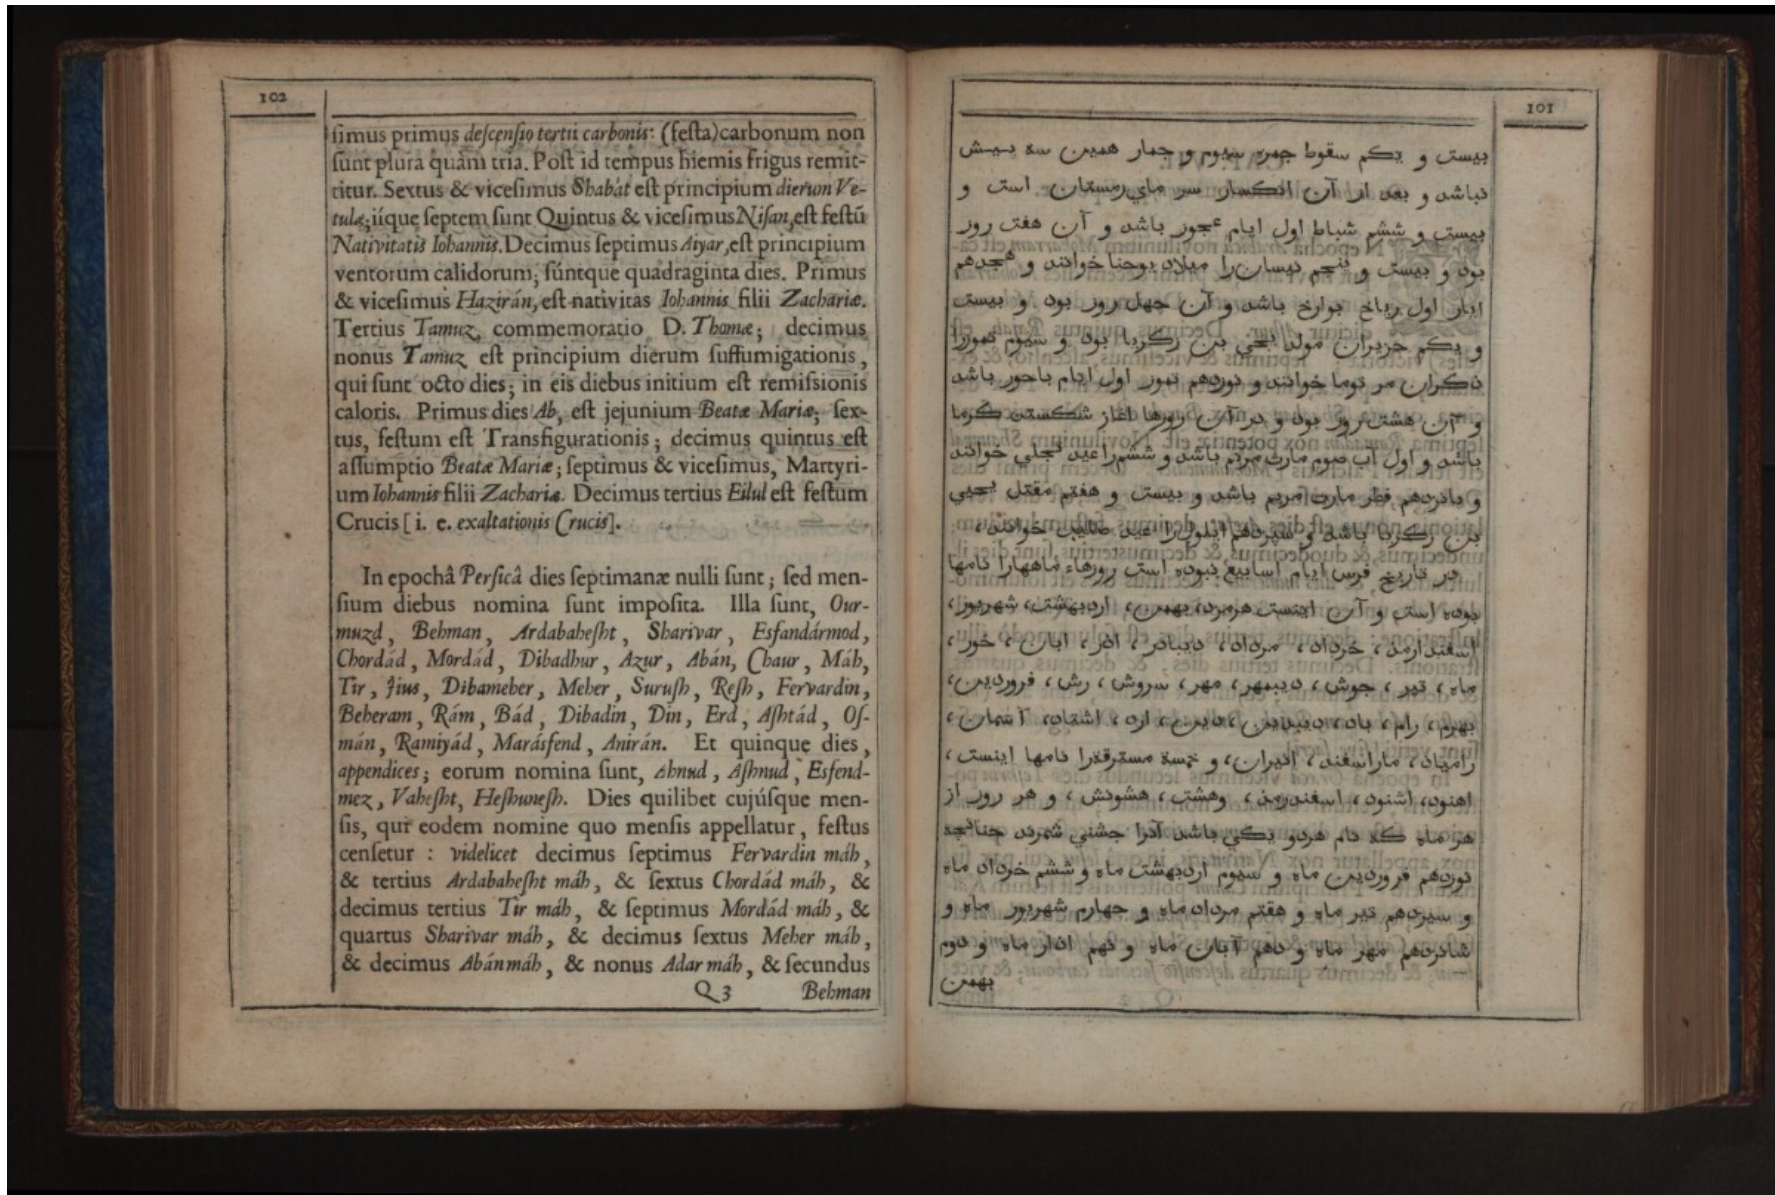 102
simus primus descensio tertii carbonis: (festa) carbonum non
sunt plura quàm tria. Post id tempus hiemis frigus remit-
titur. Sextus & vicesimus Shabát est principium dierum Ve-
tulæ; iique septem sunt Quintus & vicesimus Nisan, est festū
Nativitatis Iohannis. Decimus septimus Aiyar, est principium
ventorum calidorum; súntque quadraginta dies. Primus
& vicesimus Hazirán, est nativitas Iohannis filii Zachariæ.
Tertius Tamuz, commemoratio D. Thomæ; decimus
nonus Tamuz est principium dierum suffumigationis,
qui sunt octo dies; in eis diebus initium est remissionis
caloris. Primus dies Ab, est jejunium Beatæ Mariæ; sex-
tus, festum est Transfigurationis; decimus quintus est
assumptio Beatæ Mariæ; septimus & vicesimus, Martyri-
um Iohannis filii Zachariæ. Decimus tertius Eilul est festum
Crucis [ i. e. exaltationis Crucis].
In epochâ Persicâ dies septimanæ nulli sunt; sed men-
sium diebus nomina sunt imposita. Illa sunt, Our-
muzd, Behman, Ardabahesht, Sharivar, Esfandármod,
Chordád, Mordád, Dibadhur, Azur, Abán, Chaur, Máh,
Tir, Jius, Dibameher, Meher, Surush, Resh, Fervardin,
Beheram, Rám, Bád, Dibadin, Din, Erd, Ashtád, Os-
mán, Ramiyád, Marásfend, Anirán. Et quinque dies,
appendices; eorum nomina sunt, Ahnud, Ashnud, Esfend-
mez, Vahesht, Heshunesh. Dies quilibet cujúsque men-
sis, qui eodem nomine quo mensis appellatur, festus
censetur : videlicet decimus septimus Fervardin máh,
& tertius Ardabahesht máh, & sextus Chordád máh, &
decimus tertius Tir máh, & septimus Mordád máh, &
quartus Sharivar máh, & decimus sextus Meher máh,
& decimus Abán máh, & nonus Adar máh, & secundus
Q 3 Behman
101
بیست و یکم سقوط جمره سیوم و جمار همین سه بیش
نباشد و بعد از آن انکسار سر مای زمستان است و
بیست و ششم شباط اول ایام عجوز باشد و آن هفت روز
بود و بیست و پنجم نیسان را میلاد یوحنا خوانند و هجدهم
ایار اول ریاح بوارح باشد و آن چهل روز بود و بیست
و یکم حزیران مولد یحیی بن زکریا بود و سیوم تموز را
ذکران مر توما خوانند و نوزدهم تموز اول ایام باحور باشد
و آن هشت روز بود و در آن روزها اغاز شکستن گرما
باشد و اول آب صوم مارت مریم باشد و ششم را عید تجلی خوانند
و پانزدهم فطر مارت مریم باشد و بیست و هفتم مقتل یحیی
بن زکریا باشد و سیزدهم ایلول را عید صلیب خوانند،
در تاریخ فرس ایام اسابیع نبوده است روزهاء ماهها را نامها
بوده است و آن اینست هرمزد، بهمن، اردبهشت، شهریور،
اسفندارمذ، خرداد، مرداد، دیبادر، اذر، ابان، خور،
ماه، تیر، جوش، دیبمهر، مهر، سروش، رش، فروردین،
بهرم، رام، باد، دیبدین، دین، ارد، اشتاد، آسمان،
رامیاد، ماراسفند، انیران، و خمسة مسترقة را نامها اینست،
اهنود، اشنود، اسفندرمذ، وهشت، هشونش، و هر روز از
هر ماه که نام هردو یکی باشد آنرا جشنی شمردن چنانچه
نوزدهم فروردین ماه و سیوم اردبهشت ماه و ششم خرداد ماه
و سیزدهم تیر ماه و هفتم مرداد ماه و چهارم شهریور ماه و
شانزدهم مهر ماه و دهم آبان ماه و نهم اذار ماه و دوم
بهمن